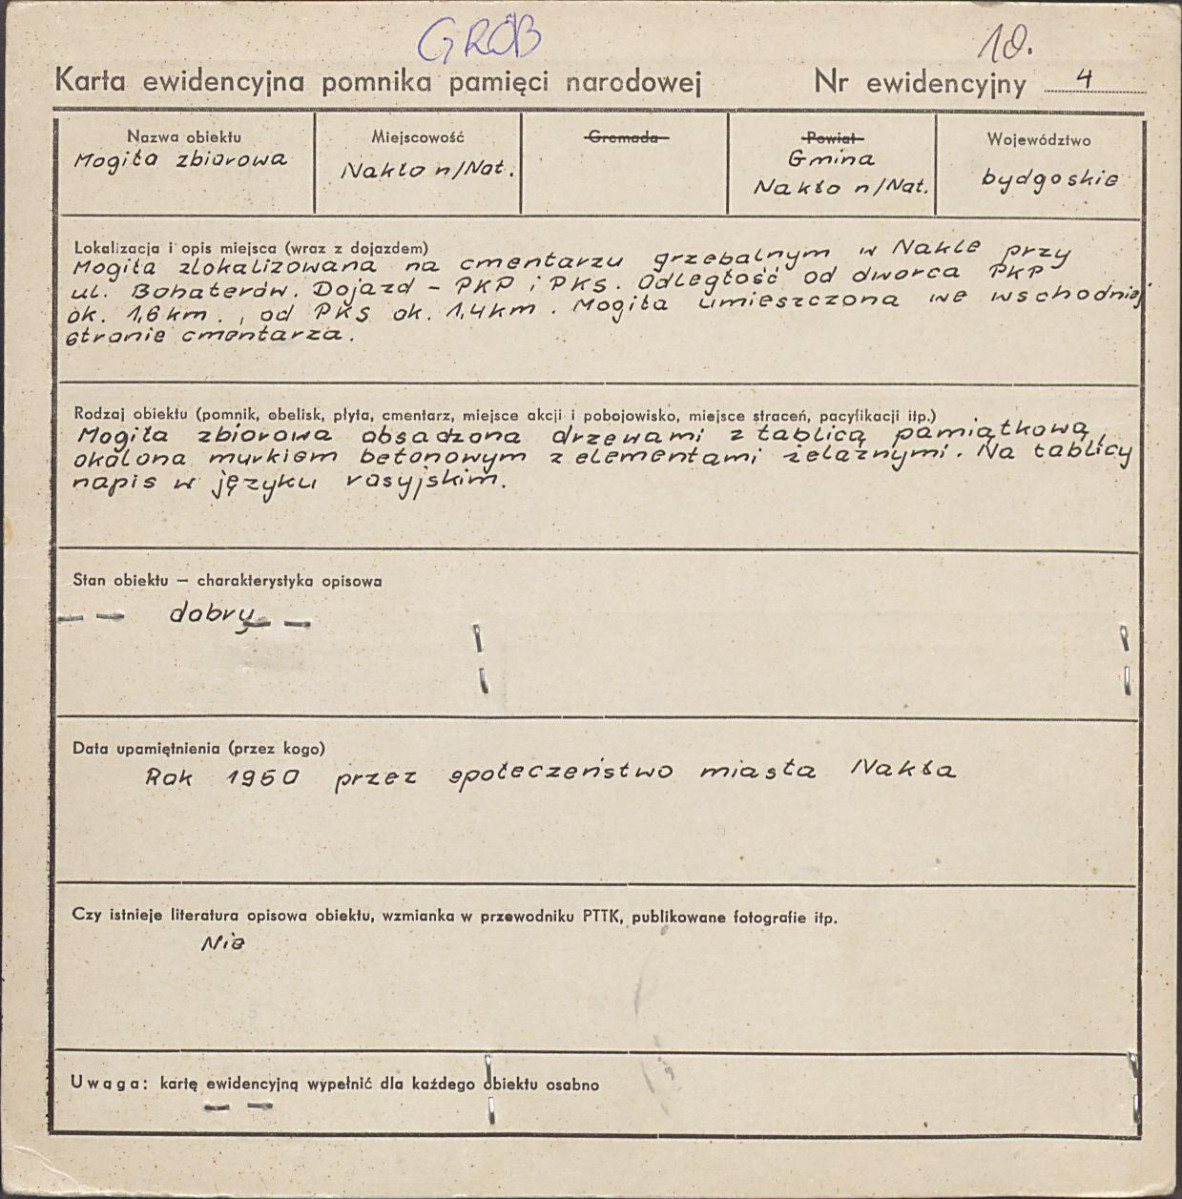 GRÓB
10.
Karta ewidencyjna pomnika pamięci narodowej Nr ewidencyjny 4
Nazwa obiektu Miejscowość Gromada Powiat Województwo
Mogiła zbiorowa Nakło n/Not. Gmina Nakło n/Not. bydgoskie
Lokalizacja i opis miejsca (wraz z dojazdem)
Mogiła zlokalizowana na cmentarzu grzebalnym w Nakle przy
ul. Bohaterów. Dojazd - PKP i PKS. Odległość od dworca PKP
ok. 1,6 km., od PKS ok. 1,4 km. Mogiła umieszczona we wschodniej
stronie cmentarza.
Rodzaj obiektu (pomnik, obelisk, płyta, cmentarz, miejsce akcji i pobojowisko, miejsce straceń, pacyfikacji itp.)
Mogiła zbiorowa obsadzona drzewami z tablicą pamiątkową,
okolona murkiem betonowym z elementami żelaznymi. Na tablicy
napis w języku rosyjskim.
Stan obiektu — charakterystyka opisowa
dobry
Data upamiętnienia (przez kogo)
Rok 1960 przez społeczeństwo miasta Nakła
Czy istnieje literatura opisowa obiektu, wzmianka w przewodniku PTTK, publikowane fotografie itp.
Nie
Uwaga: kartę ewidencyjną wypełnić dla każdego obiektu osobno